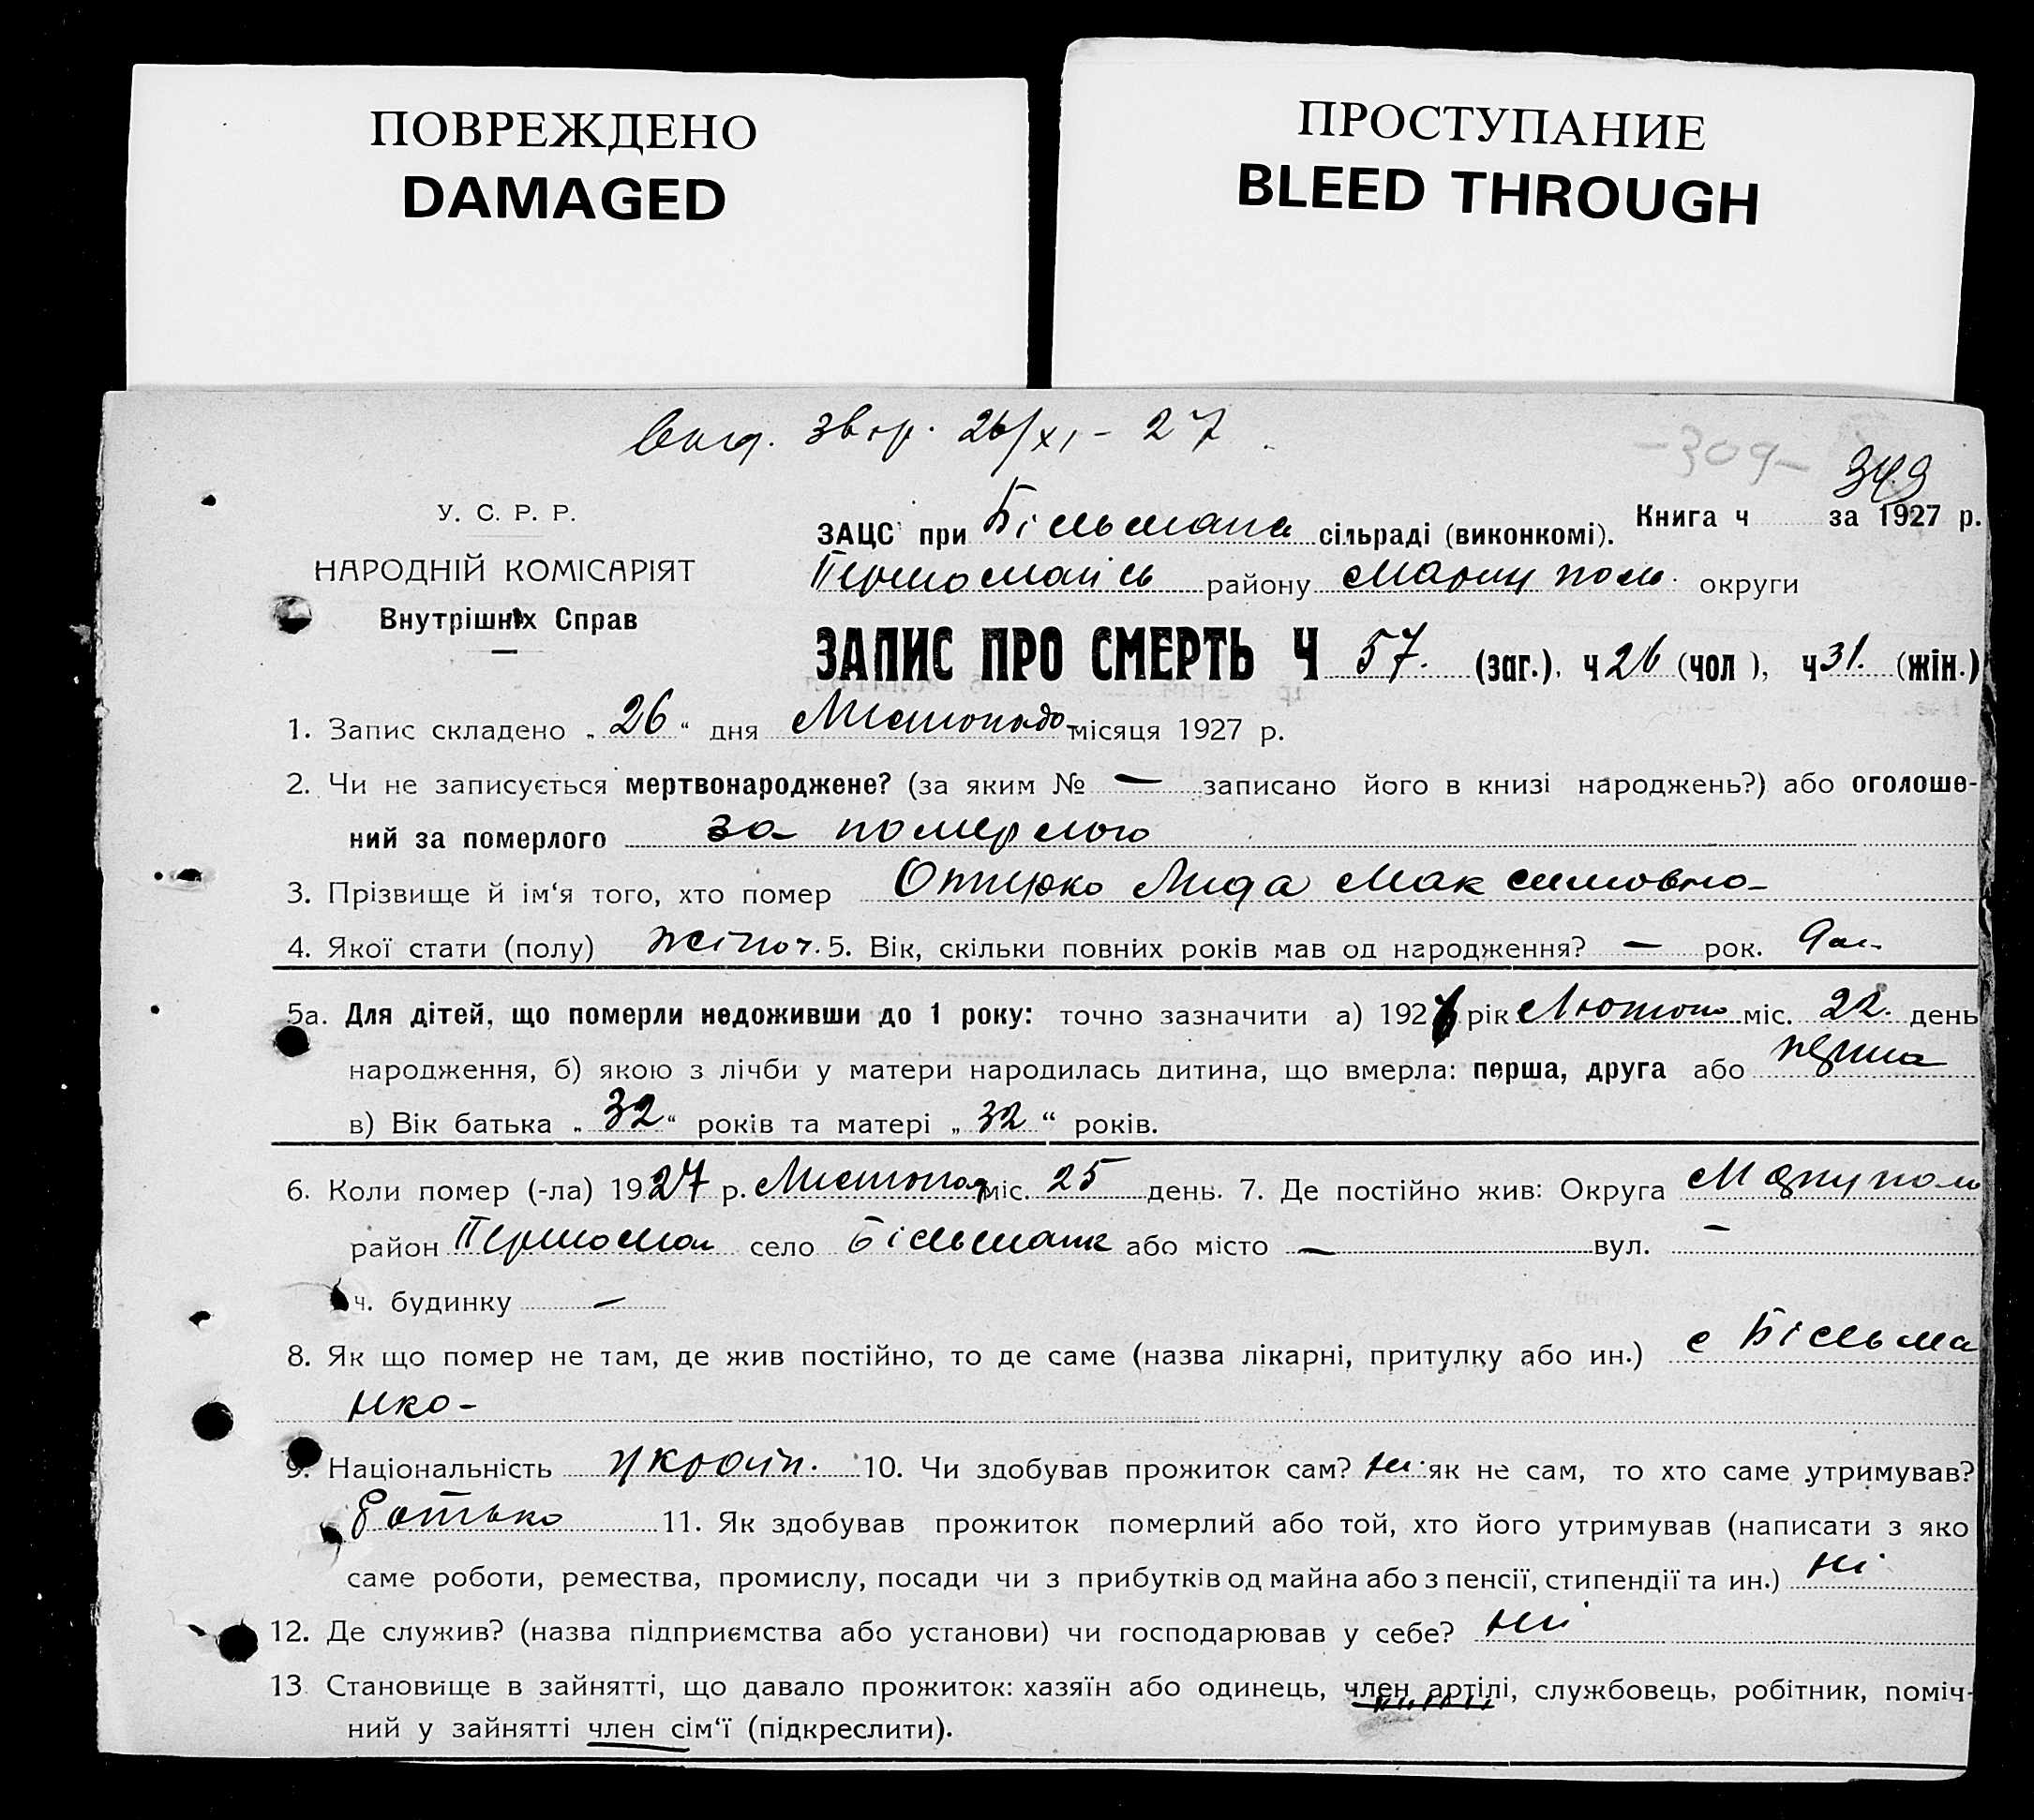 ПОВРЕЖДЕНО
DAMAGED
ПРОСТУПАНИЕ
BLEED THROUGH
звор. 26/XI - 27
-309-
349
У. С. Р. Р.
НАРОДНІЙ КОМІСАРІЯТ
Внутрішніх Справ
ЗАЦС при Більмана сільраді (виконкомі). Книга ч за 1927 р.
району Мариупол. округи
ЗАПИС ПРО СМЕРТЬ Ч 57. (заг.), ч 26 (чол ), ч 31. (жін.)
1. Запис складено „ 26 “ дня Листопадо місяця 1927 р.
2. Чи не записується мертвонароджене? (за яким № — записано його в книзі народжень?) або оголоше-
ний за померлого за померлого
3. Прізвище й ім‘я того, хто помер Лида Максимовно
4. Якої стати (полу) жіноч. 5. Вік, скільки повних років мав од народження? — рок.
5а. Для дітей, що померли недоживши до 1 року: точно зазначити а) 1927 рік Лютого міс. 22. день
народження, б) якою з лічби у матери народилась дитина, що вмерла: перша, друга або перша
в) Вік батька „ 32 “ років та матері „ 32 “ років.
6. Коли помер (-ла) 1927 р. Листопад міс. 25 день. 7. Де постійно жив: Округа Мариуполь
район Першомай село Більманк або місто — вул. —
ч. будинку —
8. Як що помер не там, де жив постійно, то де саме (назва лікарні, притулку або ин.) с Більма
нко-
9. Національність україн. 10. Чи здобував прожиток сам? ні як не сам, то хто саме утримував?
батько 11. Як здобував прожиток померлий або той, хто його утримував (написати з яко
саме роботи, ремества, промислу, посади чи з прибутків од майна або з пенсії, стипендії та ин.) ні
12. Де служив? (назва підприємства або установи) чи господарював у себе? ні
13. Становище в зайнятті, що давало прожиток: хазяїн або одинець, член артілі, службовець, робітник, поміч-
ний у зайнятті член сім‘ї (підкреслити).